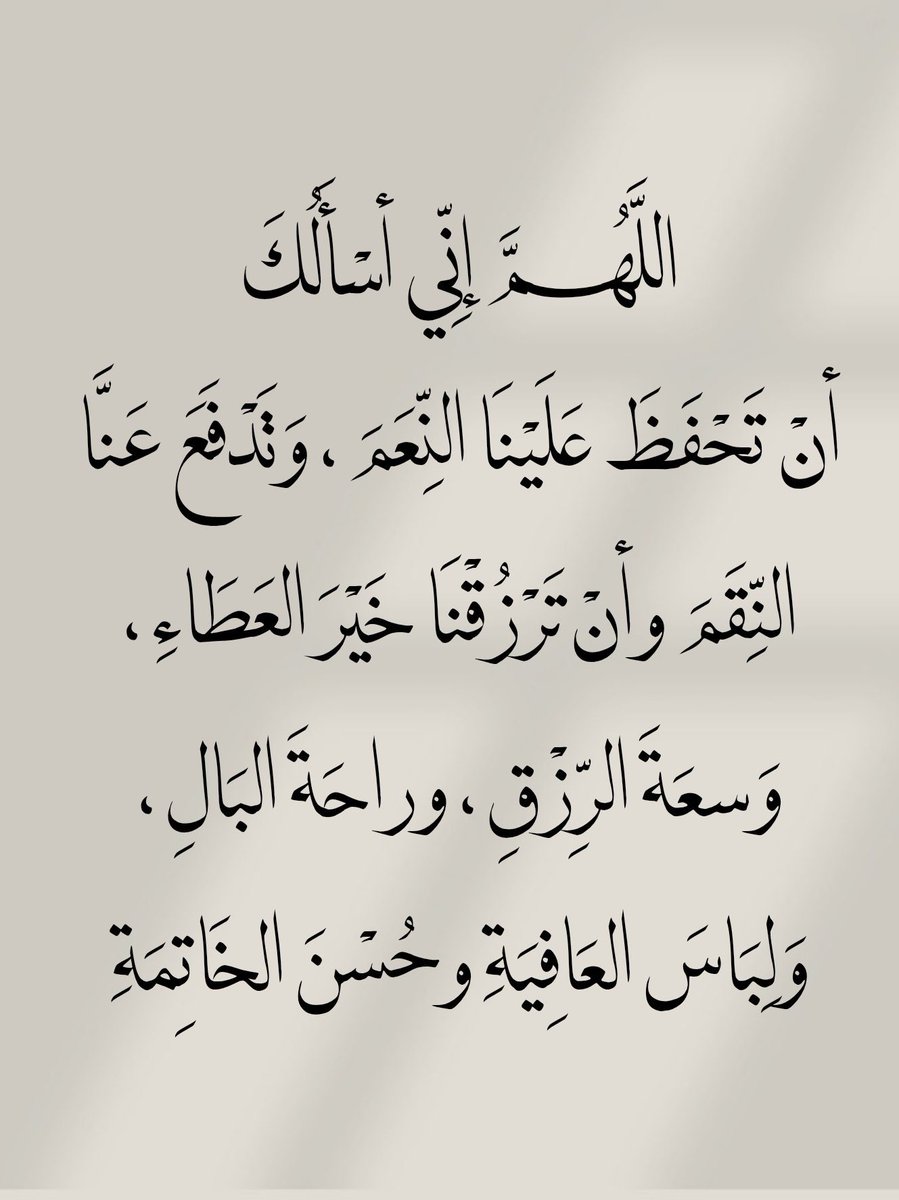 اللَّهُمَّ إِنِّي أسْأَلُكَ
أنْ تَحْفَظَ عَلَيْنَا النِّعَمَ ، وَتَدْفَعَ عَنَّا
النِّقَمَ وأنْ تَرْزُقْنَا خَيْرَ العَطَاءِ ،
وَسعَةَ الرِّزْقِ ، وراحَةَ البَالِ ،
وَلِبَاسَ العَافِيَةِ وحُسْنَ الخَاتِمَةِ